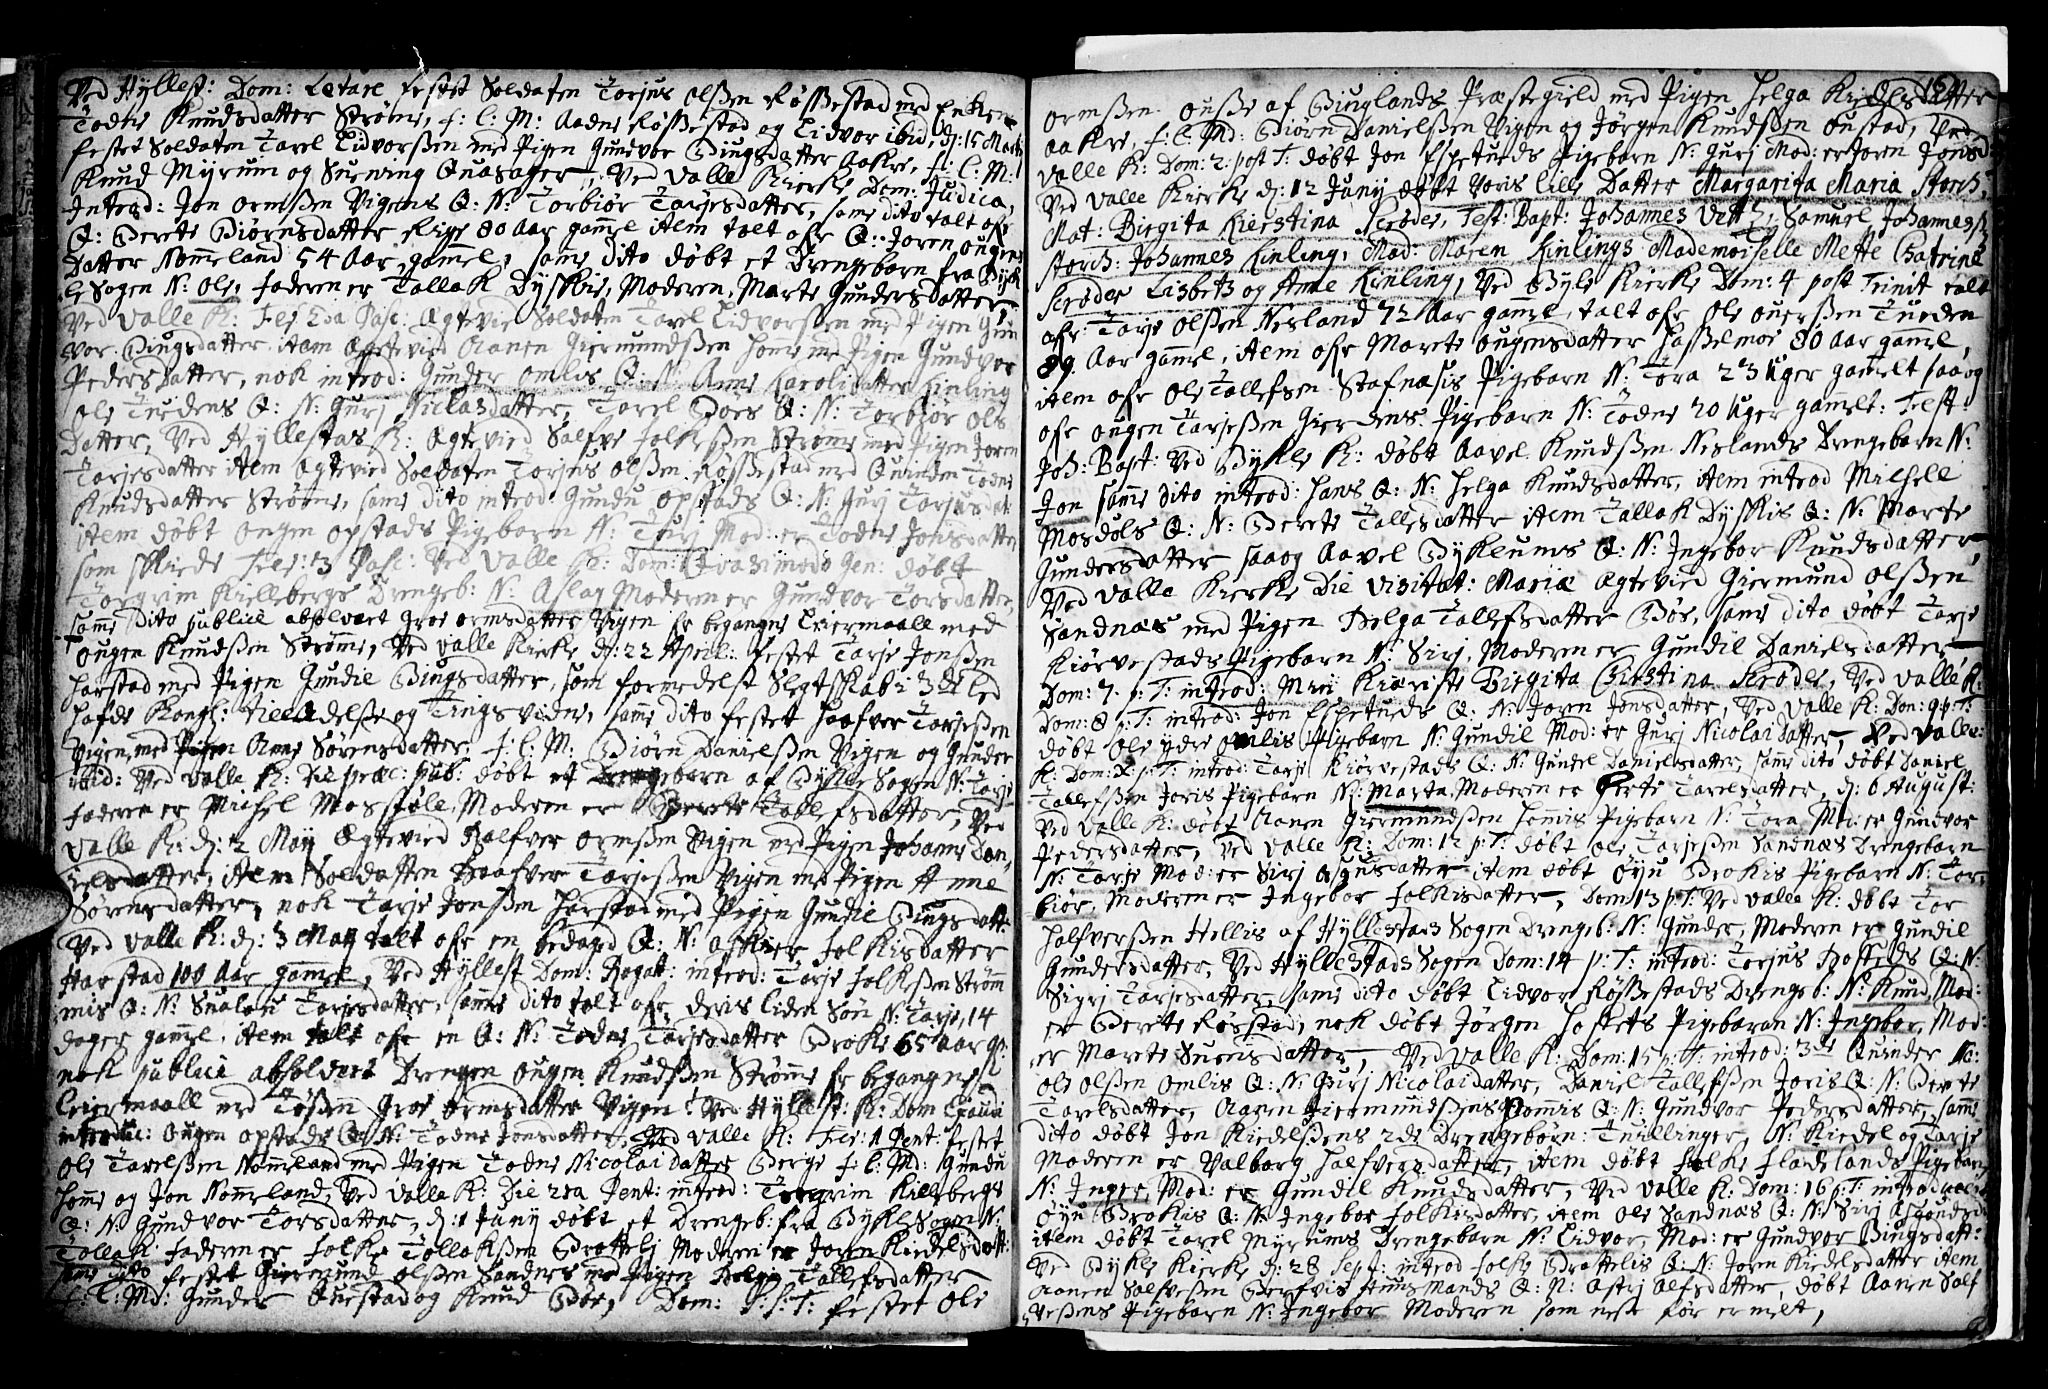 Ved Hyllest: Dom: Letare festet Soldaten Torjus Olßen Røßestad med Enken
Todne Knudsdatter Strøme, f: l: M: Aadne Røßestad og Eidvor ibid, d: 15 Marti
festet Soldaten Tarel Eidvorßen med Pigen Gundvor Biugsdatter Aakre, f: l: M:
Knud Myrum og Suening Quasager, Ved Valle Kierke Dom: Judica,
Introd: Jon Ormßen Vigens Q: N: Torbior Tarjesdatter, same dito talt ofr
Q: Berete Biørnsdatter Rige 80 Aar gamel item talt ofr Q: Joren Ougens
Datter Nomeland 54 Aar gamel, same dito døbt et Drengebarn fra Byk
le Sogen N: Ole, faderen er Tallak Dyskie, Moderen, Marte Gundersdatter,
Ved Valle K: Fer: 2da Pasc: Ægtevied Soldaten Tarel Eidvorßen med Pigen Gun
vor Biugsdatter, item Ægtevied Aanen Giermundßen Home med Pigen Gundvor
Pedersdatter, nok introd: Gunder Omlis Q: N: Anne Karolidatter Kinling
Ole Tuedens Q: N: Gurj Niclasdatter, Tarel Bøes Q: N: Torbior Ols
Datter, Ved Hyllestas K: Ægtevied Salfve Folkeßen Strøme med Pigen Joren
Tarjesdatter item Ægtevied Soldaten Torjus Olßen Røßestad med Quinden Todne
Knudsdatter Strøme, same dito introd: Gundu Opstads Q: N: Gurj Tarjusdat:
item døbt Ougen Opstads Pigebarn N: Turj Mod: er Todne Jonsdatter
som skiede Fer: 3 Pasc: Ved Valle K: Dom: Qvasimodo Gen: døbt
Torgrim Killebergs Drengeb: N: Aslag Moderen er Gundvor Torsdatter,
same Dito publice absolvert Groe Ormsdatter Vigen for begangne Leiermaall med
Ougen Knudßen Strøme, Ved Valle Kierke d: 22 April: festet Tarje Jonßen
Harstad med Pigen Gundil Biugsdatter, som formedelst Slegtskab i 3de led
hafde Kongl: tilladelse og Tingsvidne, same dito festet Haafver Tarjeßen
Vigen, med Pigen Anne Sørensdatter, f: l: M: Biørn Danielßen Vigen og Gunder
ibid: Ved Valle K: Die præc: pub: døbt et Drengebarn af Bykle Sogen N: Tarje
faderen er Michel Mosdøle, Moderen er Berete Tallefsdatter, Ved
Valle K: d: 2 May Ægtevied Halfver Ormßen Vigen med Pigen Johane Dan
ielsdatter, item Soldatten Haafver Tarjeßen Vigen med Pigen Anne
Sørensdatter, nok Tarje Jonßen Harstad med Pigen Gundil Biugsdatt:
Ved Valle K: d: 3 May talt ofr en bedaget Q: N: Folkisdatter
Harstad 100 Aar gamel, Ved Hyllest Dom: Rogat: introd: Tarje Folkeßen Strøm
mis Q: N: Sualou Tarjesdatter, same dito talt ofr deris liden Søn N: Tarje, 14
dager gamel, item talt ofr en Q: N: Todne Tarjesdatter Broke 65 Aar g:
nok publice absolvert Drengen Ougen Knudßen Strøme for begangne
Leiermaall med Tøßen Groe Ormsdatter Vigen. Ved Hyllest: K: Dom Exaudi
introduc: Ougen Opstads Q: N: Todne Jonsdatter, Ved Valle K: Fer: 1 Pent: festet
Ole Tarelßen Nomeland med Pigen Todne Nicolaidatter Berge f: l: Md: Gundu
Home og Jon Nomeland, Ved Valle K: Die 2da Pent: introd: Torgrim Killebergs
Q: N: Gundvor Torsdatter, d: 1 Juny døbt et Drengeb: fra Bykle Sogen N:
Tollak faderen er Folke Tollakßen Brottelj Moderen er Joren Kiedelsdatt:
same dito festet Giermund Olßen Sandnes med Pigen Helge Tallefsdatter
f: l: Md: Gunder Questad og Knud Bøe, Dom: P: S: T: festet Ole
Ormßen Ouße af Biuglands Præstegield med Pigen Helga Kiedelsdatter
Aakre, f: l: Md: Biørn Danielßen Vigen og Jørgen Knudßen Oustad, Ved
Valle K: Dom: 2: post T: døbt Jon Espetueds Pigebarn N: Gurj Mod: er Joren Jonsd:
Ved Valle Kierke d: 12 Juny døbt Voris lille Datter Margarita Maria Storch,
Mat: Birgita Kierstina Scrøder, Test: Bapt: Johannes Samuel Johannesß
Storch: Johannes Kinling, Mad: Maren Kinlings Mademoiselle Mette Catrine
Scrøder Lisbets og Anne Kinling, Ved Bykle Kierke Dom: 4 post Trinit talt
ofr Tarje Olßen Nesland 72 Aar gamel, talt ofr Ole Ouerßen Tueden
89 Aar gamel, item ofr Marete Ougensdatter Haßelmoe 80 Aar gamel,
item ofr Ole Tallefsen Stafnæsis Pigebarn N: Tora 23 Uger gamelt saaog
ofr Ougen Tarjeßen Gierdens Pigebarn N: Todne 20 Uger gamelt: Fest:
Joh: Bapt: Ved Bykle K: døbt Aavel Knudßen Neslands Drengebarn N:
Jon same dito introd: hans Q: N: Helga Knudsdatter, item introd Michell
Mosdøls Q: N: Berete Tallesdatter item Tallak Dyskis Q: N: Marte
Gundersdatter saaog Aavel Bykleums Q: N: Ingebor Knudsdatter,
Ved Valle Kierke Die Visitat: Mariæ Ægtevied Giermund Olßen
Sandnæs med Pigen Helga Tallefsdatter Bøe, same dito døbt Tarje
Kiørvestads Pigebarn N: Sirj Moderen er Gundil Danielsdatter
Dom: 7. p: T: introd: Min Kiæriste Birgita Christina Scrøder, Ved Valle K:
Dom: 8 p: T: introd: Jon Espetueds Q: N: Joren Jonsdatter, Ved Valle K: Dom: 9 p: T:
døbt Ole Ydre Omlis Pigebarn N: Gundil Mod: er Gurj Nicolaidatter, Ved Valle:
K: Dom: X: p: T: introd: Tarje Kiørvestads Q: N: Gundel Danielsdatter, same dito døbt Daniel
Tallefßen Joris Pigebarn N: Marta, Moderen er Berte Tarelsdatter, d: 6 August:
Ved Valle K: døbt Aanen Giermundßen Homis Pigebarn N: Tora Mo: er Gundvor
Pedersdatter, Ved Valle K: Dom: 12 p: T: døbt Ole Tarjeßen Sandnæs Drengebarn
N: Tarje Mod: er Sirj Asgusdatter item døbt Øyu Brokis Pigebarn N: Tor
biør, Moderen er Ingebor Folkisdatter, Dom: 13 p: T: Ved Valle K: døbt Tor
Halfverßen Hellis af Hyllestads Sogen Drengeb: N: Gunder, Moderen er Gundil
Gundersdatter, Ved Hyllestads Sogen Dom: 14 p: T: introd: Torjus Q: N:
Sigrj Tarjesdatter, same dito døbt Eidvor Røßestads Drengeb: N: Knud, Mod:
er Berete Røsstad, nok døbt Jørgen Hoslets Pigebaran N: Ingebor, Mod:
er Marete Suensdatter, Ved Valle K: Dom: 15 p: T: introd: 3de Quinder No:
Ole Olßen Omlis Q: N: Gurj Nicolaidatter, Daniel Tallefßen Joris Q: N: Berete
Tarelsdatter, Aanen Giermundßens Homis Q: N: Gundvor Pedersdatter, same
dito døbt Jon Kiedelßens 2de Drengebørn: Tuillinger, N: Kiedel og Tarje
Moderen er Valborg Halfversdatter, item døbt Folke Fladelands Pigebarn
N: Inger, Mod: er Gundil Knudsdatter, Ved Valle K: Dom: 16 p: T: introducert
Øyu Brokis Q: N: Ingebor Folkisdatter, item Ole Sandnæs Q: N: Sirj
item døbt Tarel Myrums Drengebarn N: Eidvor, Mod: er Gundvor Biugsdatt:
Ved Bykle Kierke d: 28 Sept: introd Folke Brottelis Q: N: Joren Kiedelsdatter item
Aanen Salfveßen Q: N: Astrj Alfsdatter, døbt Aanen Salf
veßens Pigebarn N: Ingebor Moderen som nest før ermelt,